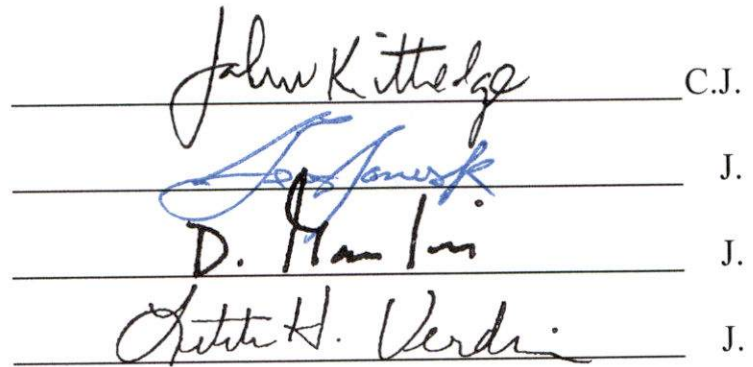 John Kittredge C.J.
J.
D. J.
Letitia H. Verdin J.